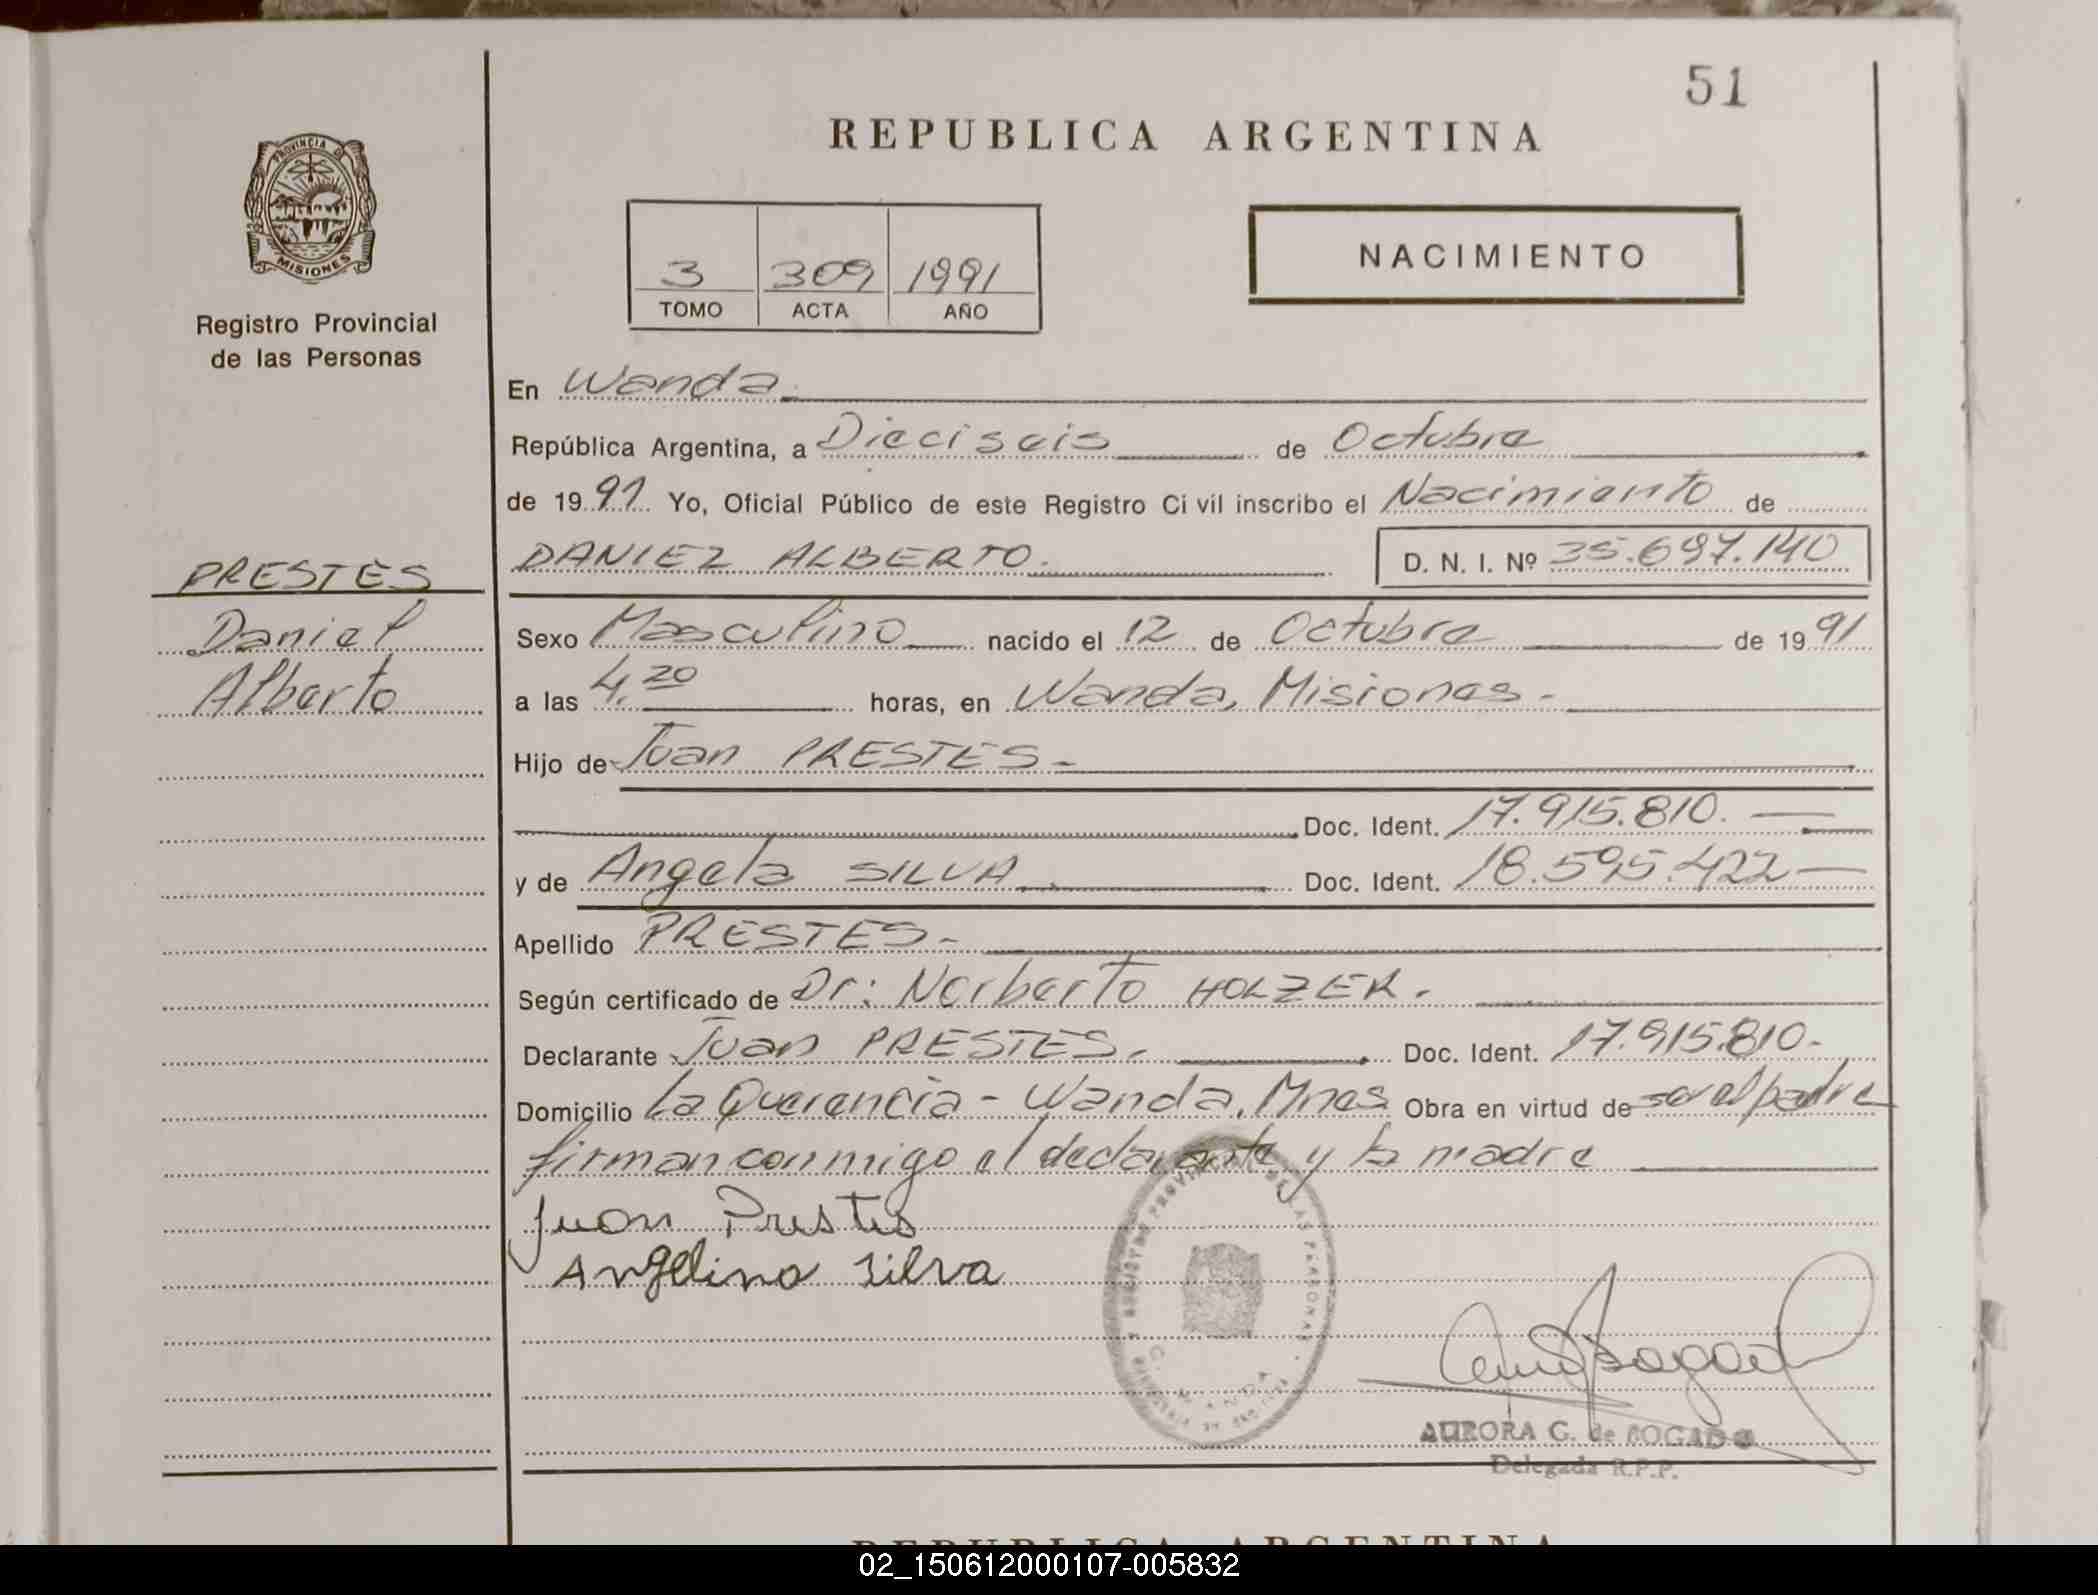 51
REPUBLICA ARGENTINA
PROVINCIA DE
MISIONES
Registro Provincial
de las Personas
NACIMIENTO
3 309 1991
TOMO ACTA AÑO
En Wanda.
República Argentina, a Dieciseis de Octubre
de 1991 Yo, Oficial Público de este Registro Civil inscribo el Nacimiento de
DANIEL ALBERTO. D. N. I. Nº 35.697.140
PRESTES
Daniel
Alberto
Sexo Masculino nacido el 12 de Octubre de 1991
a las 4.20 horas, en Wanda, Misiones-
Hijo de Juan PRESTES-
Doc. Ident. 17.915.810.
y de Angela SILVA Doc. Ident. 18.595.422
Apellido PRESTES-
Según certificado de Dr: Norberto HOLZER.
Declarante Juan PRESTES. Doc. Ident. 17.915.810-
Domicilio La Querencia - Wanda, Mnes Obra en virtud de ser el padre
firman conmigo el declarante y la madre
Juan Prestes
Angelina Silva
AURORA G. de BOGADO
Delegada R.P.P.
REPUBLICA ARGENTINA
02_150612000107-005832